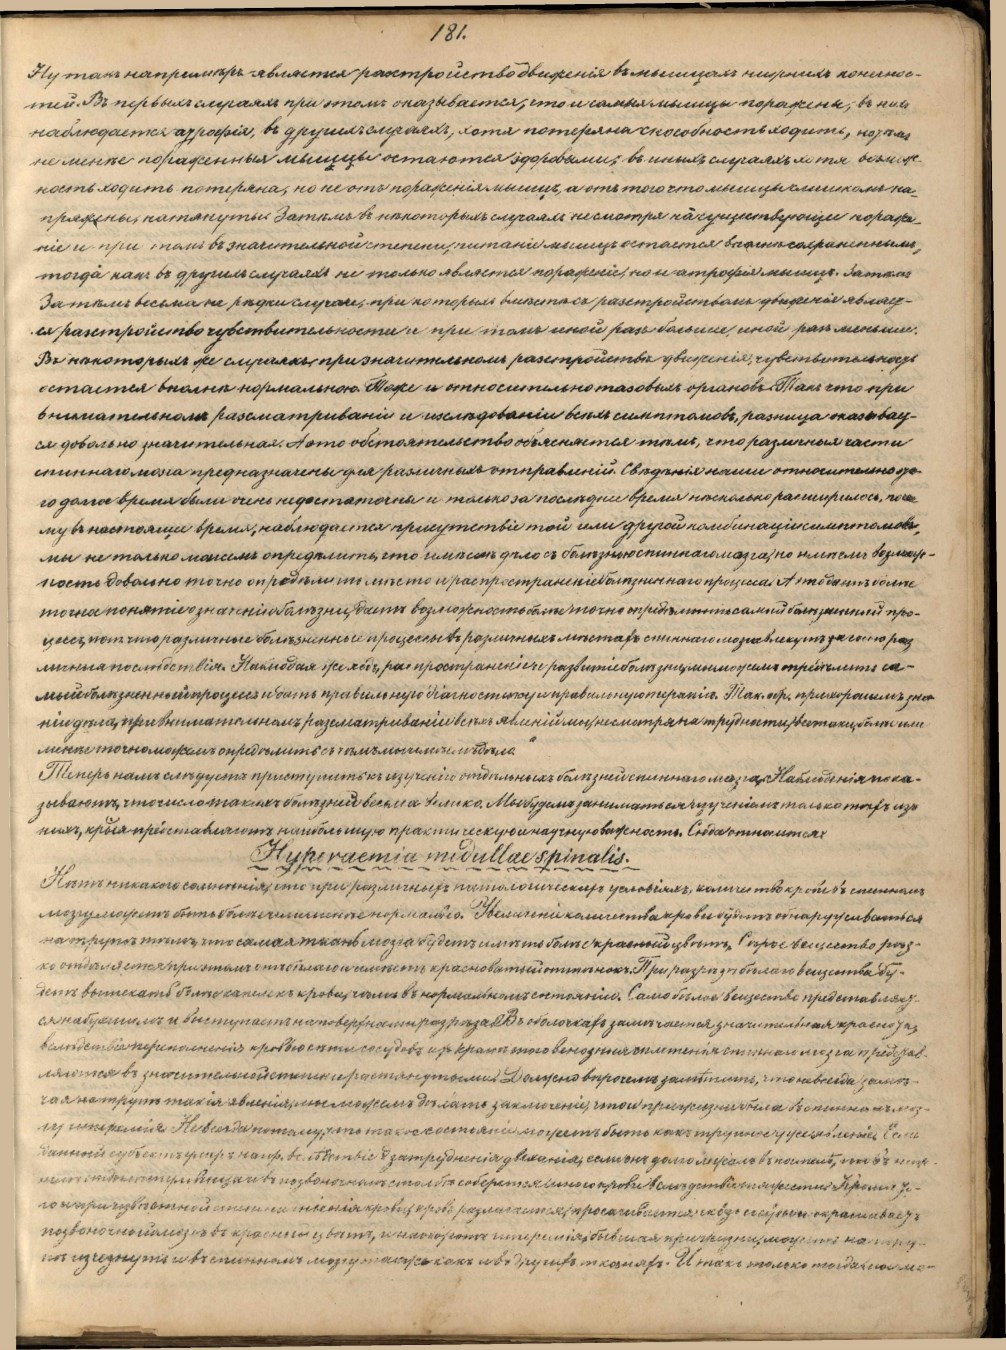 181.
Ну такъ напримѣръ является разстройство движенія въ мышцахъ нижнихъ конечнос-
тей. Въ первыхъ случаяхъ при этомъ оказывается, что и самыя мышцы поражены, въ них
наблюдается атрофія, въ другихъ случаяхъ, хотя потеряна способность ходить, но тѣмъ
не менѣе пораженныя мышцы остаются здоровыми; въ иныхъ случаяхъ хотя возмож-
ность ходить потеряна, но не отъ пораженія мышцъ, а отъ того что мышцы слишкомъ на-
пряжены, натянуты. Затѣмъ въ нѣкоторыхъ случаяхъ несмотря на существующее пораже-
ніе и при томъ въ значительной степени, питаніе мышцъ остается вполнѣ сохраненнымъ,
тогда какъ въ другихъ случаяхъ не только является пораженіе, но и атрофія мышцъ. Затѣмъ
Затѣмъ весьма не рѣдки случаи, при которыхъ вмѣстѣ съ разстройствомъ движенія являет-
ся разстройство чувствительности и при томъ иной разъ больше, иной разъ меньше.
Въ нѣкоторыхъ же случаяхъ, при значительномъ разстройствѣ движенія, чувствительность
остается вполнѣ нормальною. Тоже и относительно тазовыхъ органовъ. Такъ что при
внимательномъ разсматриваніи и изслѣдованіи всѣхъ симптомовъ, разница оказывает-
ся довольно значительная. А это обстоятельство объясняется тѣмъ, что различныя части
спиннаго мозга предназначены для различныхъ отправленій. Свѣдѣнія наши относительно это-
го долгое время были очень недостаточны и только за послѣднее время нѣсколько расширилось, поче-
му въ настоящее время, наблюдается присутствіе той или другой комбинаціи симптомовъ,
мы не только можемъ опредѣлить, что имѣемъ дѣло съ болѣзнью спиннаго мозга, но имѣемъ возмож-
ность довольно точно опредѣлить мѣсто и распространеніе болѣзненнаго процесса. А это даетъ болѣе
точное понятіе о значеніи болѣзни, даетъ возможность болѣе точно опредѣлить самый болѣзненный про-
цессъ, потому что различные болѣзненные процессы въ различныхъ мѣстахъ спиннаго мозга влекутъ за собою раз-
личныя послѣдствія. Наблюдая же ходъ, распространеніе и развитіе болѣзни, мы можемъ опредѣлить са-
мый болѣзненный процессъ и дать правильную діагностику и правильную терапію. Так. обр. при хорошемъ зна-
ніи дѣла, при внимательномъ разсматриваніи всѣхъ явленій мы, несмотря на трудности, всетаки болѣе или
менѣе точно можемъ опредѣлить съ чѣмъ мы имѣемъ дѣло.
Теперь намъ слѣдуетъ приступить къ изученію отдѣльныхъ болѣзней спиннаго мозга. Наблюденія пока-
зываютъ, что число такихъ болѣзней весьма велико. Мы будемъ заниматься изученіемъ только тѣхъ изъ
нихъ, крыя представляютъ наибольшую практическую и научную важность. Сюда относится:
Hyperaemia medullae spinalis.
Нѣтъ никакого сомнѣнія, что при различныхъ патологическихъ условіяхъ, количество крови въ спинномъ
мозгу можетъ быть болѣе или менѣе нормальнаго. Увеличеніе количества крови будетъ обнаруживаться
на трупѣ тѣмъ, что самая ткань мозга будетъ имѣть болѣе красный цвѣтъ. Сѣрое вещество рѣз-
ко отдѣляется при этомъ отъ бѣлаго и имѣетъ красноватый оттѣнокъ. При разрѣзѣ бѣлаго вещества бу-
детъ вытекать болѣе капелекъ крови, чѣмъ въ нормальномъ состояніи. Само бѣлое вещество представляет-
ся набухшимъ и выступаетъ на поверхности разрѣза. Въ оболочкахъ замѣчается значительная краснота
вслѣдствіе переполненія кровью сѣти сосудовъ и кромѣ того венозныя сплетенія спиннаго мозга представ-
ляются въ значительной степени растянутыми. Должно впрочемъ замѣтить, что не всегда замѣ-
чая на трупѣ такія явленія, мы можемъ дѣлать заключеніе, что и при жизни была въ спинномъ моз-
гу гиперемія. Не всегда потому, что такое состояніе можетъ быть какъ трупное явленіе. Если
данный субъектъ умеръ напр. вслѣдствіе затрудненія дыханія, если онъ долго лежалъ въ постели, то
въ позвоночномъ столбѣ соберется много крови вслѣдствіе тяжести. Кромѣ то-
го крови, кровь разлагается, просачивается сквозь сосуды и окрашиваетъ
позвоночный мозгъ въ красный цвѣтъ, и наоборотъ гиперемія, бывшая при жизни, можетъ на тру-
пѣ изчезнуть и въ спинномъ мозгу также какъ и въ другихъ тканяхъ. И такъ только тогда мы мо-